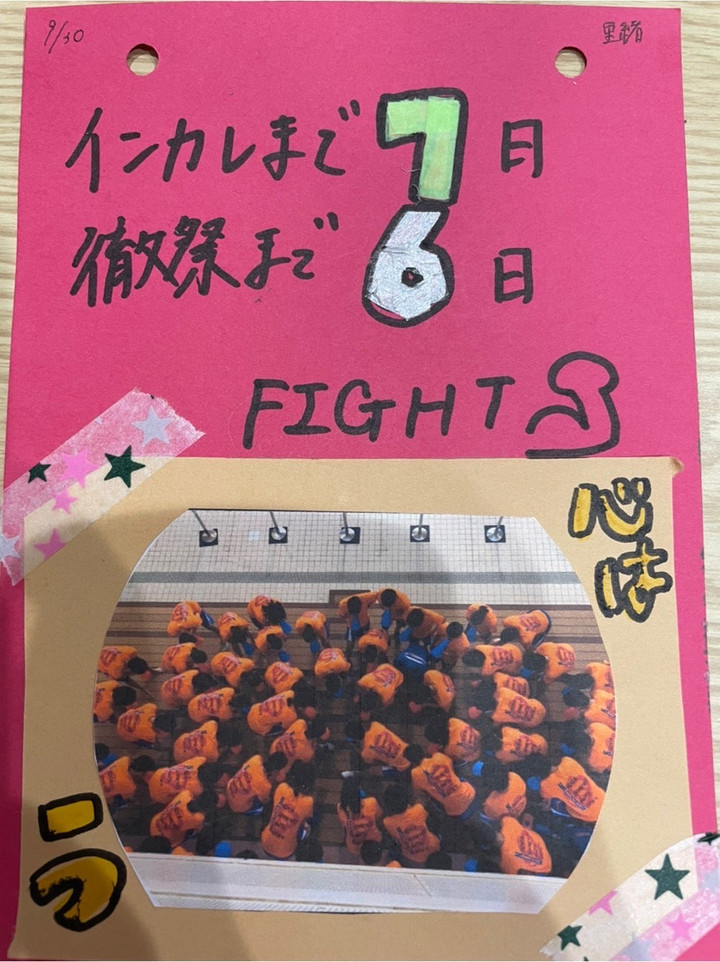 9/30
里緒
インカレまで7日
徹祭まで6日
FIGHT
心は
一つ